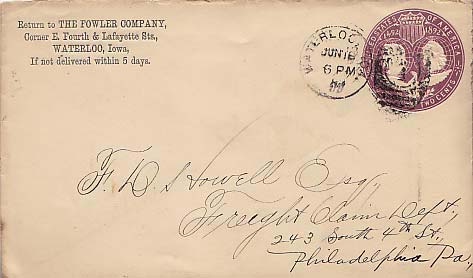 Return to THE FOWLER COMPANY,
Corner E. Fourth & Lafayette Sts.,
WATERLOO, Iowa,
If not delivered within 5 days.
WATERLOO
JUN 16
6 PM
UNITED STATES OF AMERICA
1492 1892
TWO CENTS
F. D. Howell Esq.,
Freight Claim Dept.,
243 South 4th St.,
Philadelphia Pa,